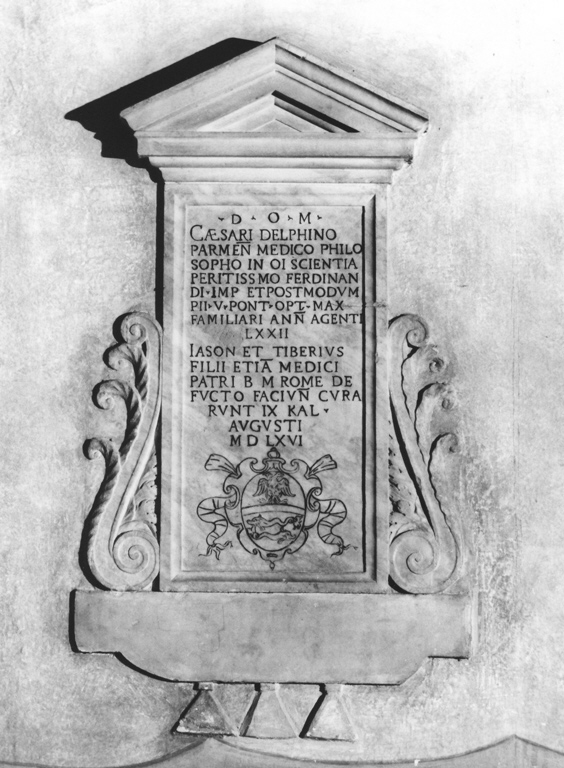 · D · O · M ·
CÆSARI DELPHINO
PARMEN̄ MEDICO PHILO
SOPHO IN OI SCIENTIA
PERITISSMO FERDINAN
DI · IMP ET POSTMODVM
PII · V · PONT · OPT̄ · MAX ·
FAMILIARI ANN̄ AGENTI
LXXII
IASON ET TIBERIVS
FILII ETIĀ MEDICI
PATRI B M ROME DE
FVCTO FACIVN̄ CVRA
RVNT IX KAL ·
AVGVSTI
MD LXVI